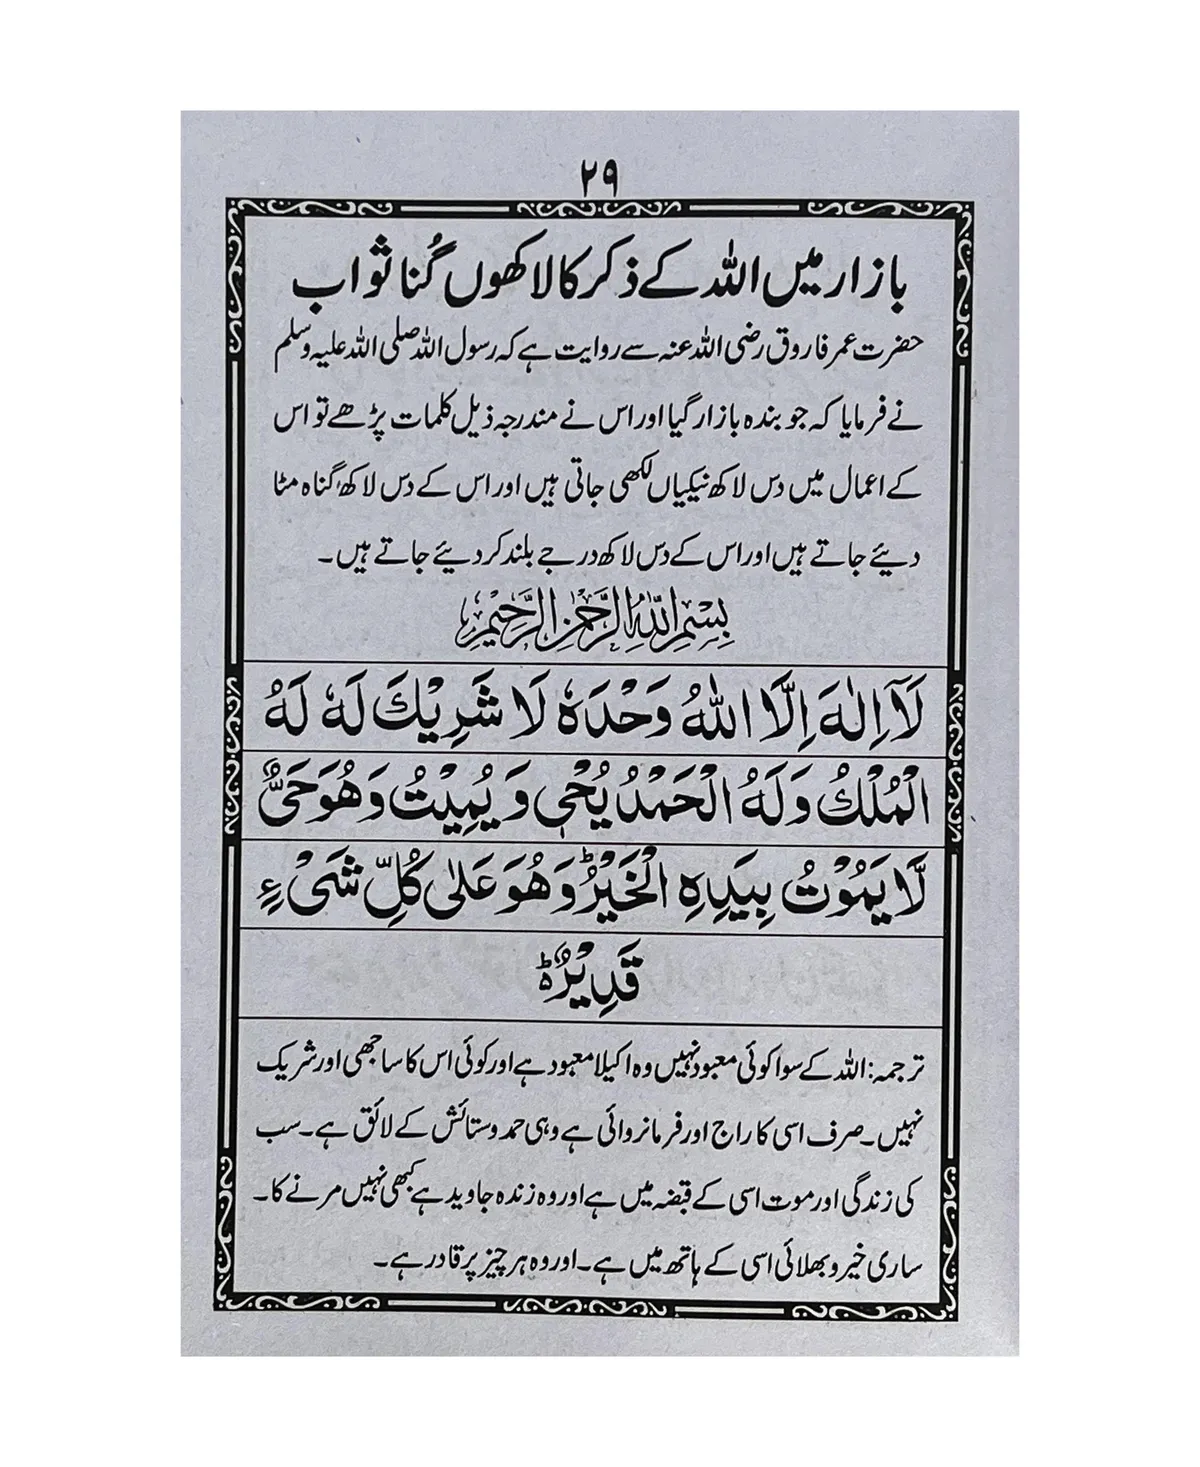 ۲۹
بازار میں اللہ کے ذکر کا لاکھوں گُنا ثواب
حضرت عمر فاروق رضی اللہ عنہ سے روایت ہے کہ رسول اللہ صلی اللہ علیہ وسلم
نے فرمایا کہ جو بندہ بازار گیا اور اس نے مندرجہ ذیل کلمات پڑھے تو اس
کے اعمال میں دس لاکھ نیکیاں لکھی جاتی ہیں اور اس کے دس لاکھ گناہ مٹا
دیئے جاتے ہیں اور اس کے دس لاکھ درجے بلند کر دیئے جاتے ہیں۔
بِسْمِ اللهِ الرَّحْمٰنِ الرَّحِيْمِ
لَآ اِلٰهَ اِلَّا اللهُ وَحْدَهٗ لَا شَرِيْكَ لَهٗ لَهُ
الْمُلْكُ وَلَهُ الْحَمْدُ يُحْيٖ وَيُمِيْتُ وَهُوَ حَيٌّ
لَّا يَمُوْتُ بِيَدِهِ الْخَيْرُ ؕ وَهُوَ عَلٰى كُلِّ شَيْءٍ
قَدِيْرٌ ؕ
ترجمہ: اللہ کے سوا کوئی معبود نہیں وہ اکیلا معبود ہے اور کوئی اس کا ساجھی اور شریک
نہیں۔ صرف اسی کا راج اور فرمانروائی ہے وہی حمد وستائش کے لائق ہے۔ سب
کی زندگی اور موت اسی کے قبضہ میں ہے اور وہ زندہ جاوید ہے کبھی نہیں مرنے کا۔
ساری خیر و بھلائی اسی کے ہاتھ میں ہے۔ اور وہ ہر چیز پر قادر ہے۔